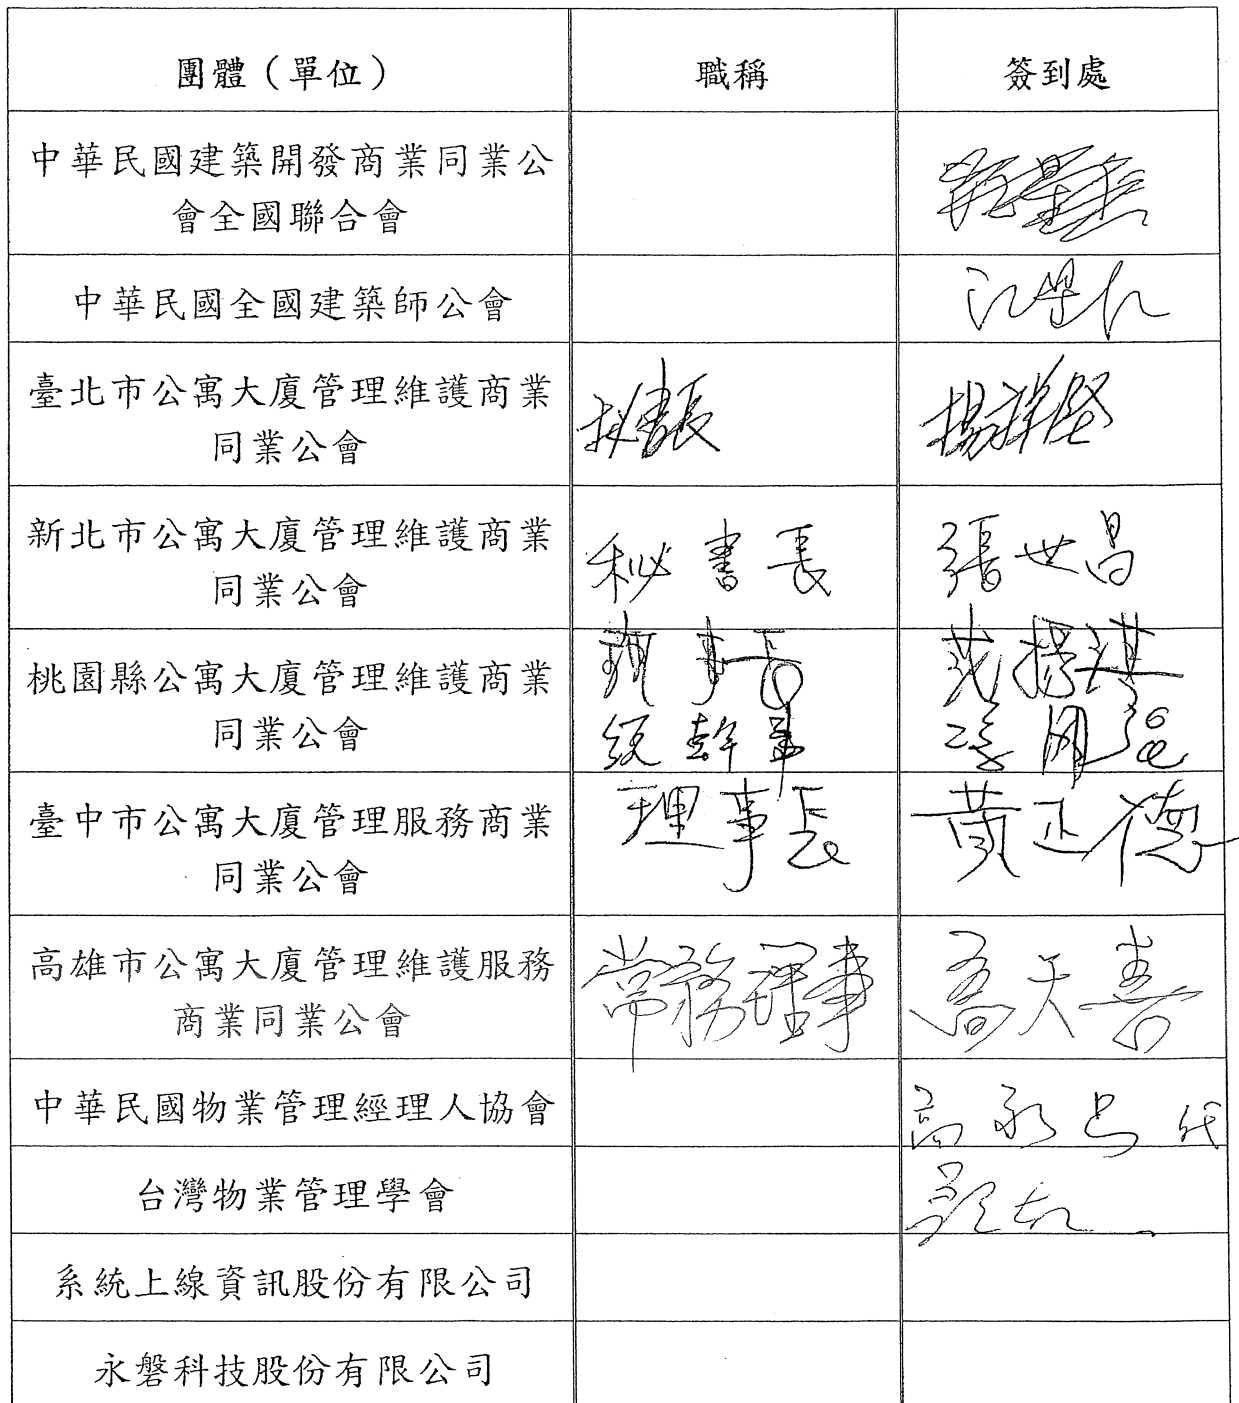 團體（單位） 職稱 簽到處
中華民國建築開發商業同業公
會全國聯合會
中華民國全國建築師公會 江星仁
臺北市公寓大廈管理維護商業
同業公會
秘書長 楊祥堅
新北市公寓大廈管理維護商業
同業公會
秘書長 張世昌
桃園縣公寓大廈管理維護商業
同業公會
理事長
總幹事
臺中市公寓大廈管理服務商業
同業公會
理事長 黃正德
高雄市公寓大廈管理維護服務
商業同業公會
常務理事 喬天喜
中華民國物業管理經理人協會 高永昌 代
台灣物業管理學會
系統上線資訊股份有限公司
永磐科技股份有限公司